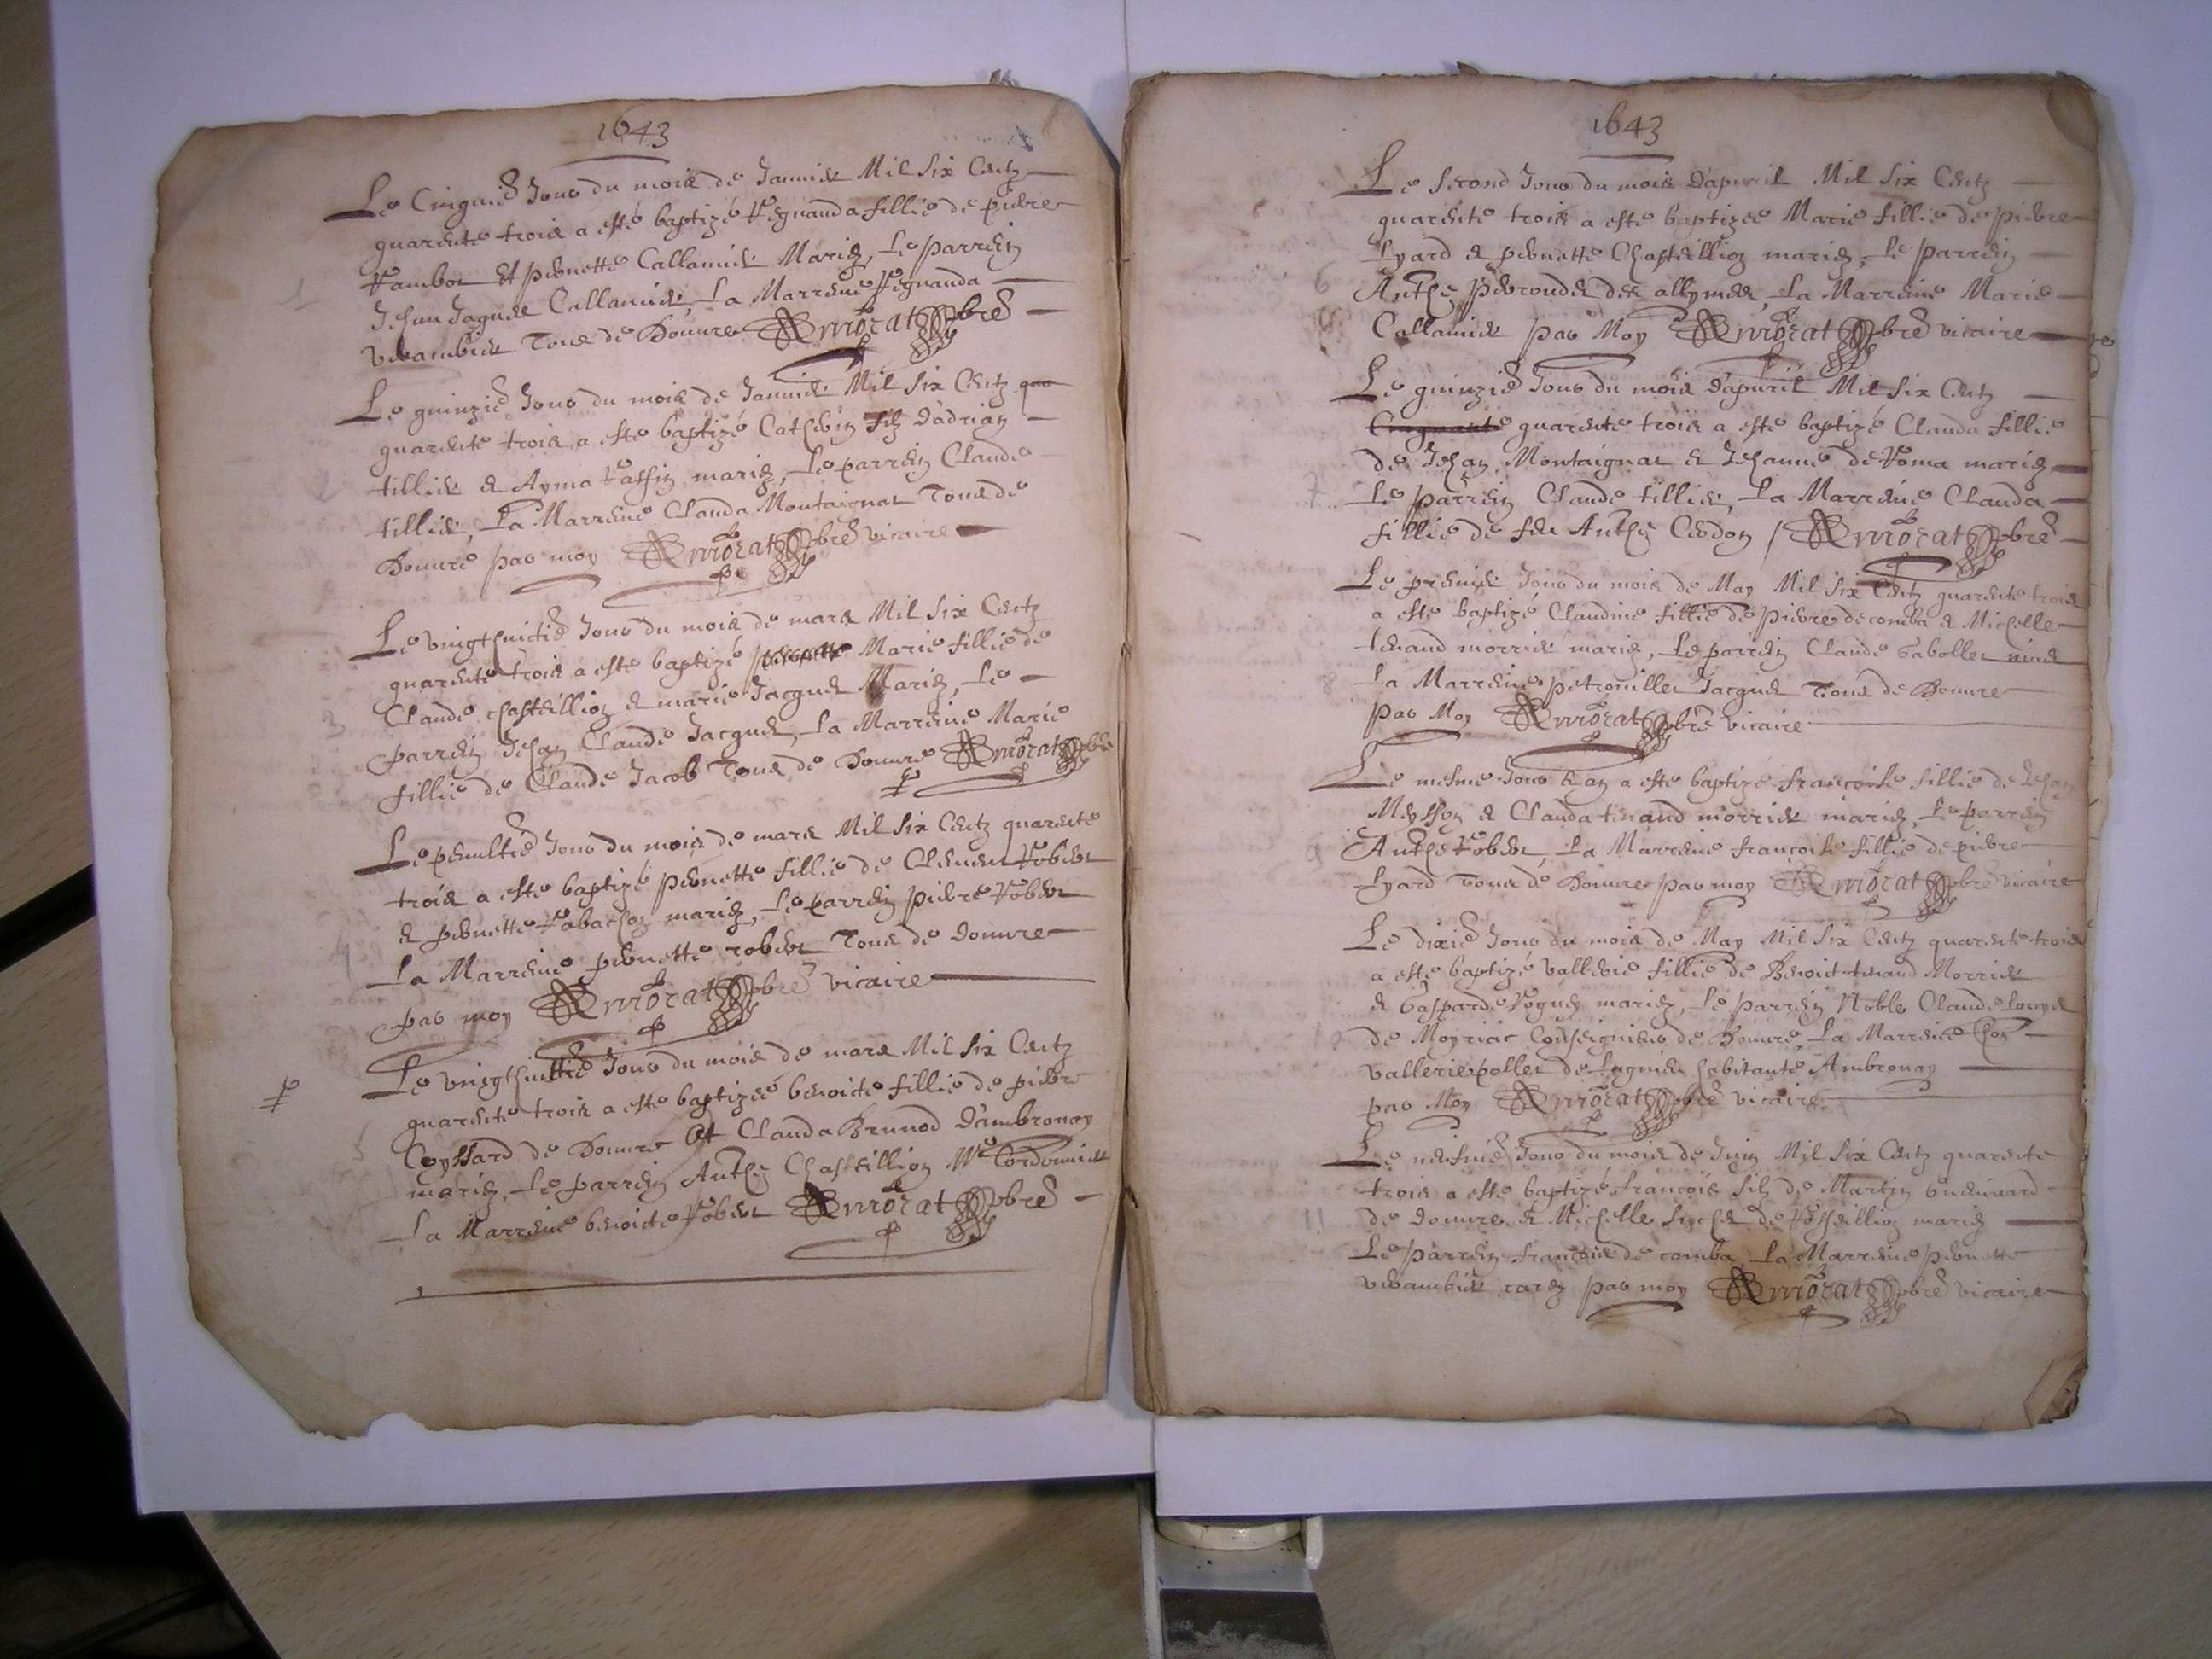 1643
Le Cinquie Jour du mois de Janvier Mil Six Centz
quarente trois a esté baptizé Regnauda fillie de pierre
Rambot Et pernette Callamier Mariez, Le parrein
Jehan Jaques Callamier La Marreine Regnauda
Tous de Douvre pbre
Le quinzie Jour du mois de Janvier Mil Six Centz qua
quarente trois a esté baptizé Catherin filz d'adrian
tillier & Ayma mariez, Le parrein Claude
tillier, La Marreine Clauda Montaignat Tous de
Douvre par moy pbre vicaire
Le vingthuictie Jour du mois de mars Mil Six Centz
quarente trois a esté baptizé Marie fillie de
Claude Chasteillion & marie Jacques Mariez, Le
parrein Jehan Claude Jacques, La Marreine Marie
fillie de Claude Jacob Tous de Douvre pbre
Le penultie Jour du mois de mars Mil Six Centz quarente
trois a esté baptizé pernette fillie de Clement Robert
& pernette Rabachon mariez, Le parrein pierre Robert
La Marreine pernette robert Tous de Douvre
par moy pbre vicaire
Le vingthuittie Jour du mois de mars Mil Six Centz
quarente trois a esté baptizée benoicte fillie de pierre
Coyssard de Douvre Et Clauda Brunod D'ambronay
mariez, Le parrein Anthe Chasteillion Me Cordonnier
La Marreine benoicte Robert pbre
1643
Le Second Jour du mois D'apvril Mil Six Centz
quarente trois a esté baptizée Marie fillie de Pierre
Lyard & pernette Chasteillion mariez, Le parrein
Anthe des allymes, La Marreine Marie
Callamier par Moy pbre vicaire
Le quinzie Jour du mois D'apvril Mil Six Centz
Cinquante quarente trois a esté baptizé Clauda fillie
de Jehan Montaignat & Jehanne de Roma mariez
Le parrein Claude tillier, La Marreine Clauda
fillie de feu Anthe Credoz / pbre
Le premier Jour du mois de May Mil Six Centz quarente trois
a esté baptizé Claudine fillie de Pierre decomba & Michelle
tenand morrier mariez, Le parrein Claude Gabollet
La Marreine petronille Jacques Tous de Douvre
par Moy pbre vicaire
Le mesme Jour & an a esté baptizé françoise fillie de Jehan
Meysson & Clauda tenand morrier mariez, Le parrein
Anthe Robert, La Marreine françoise fillie de pierre
Lyard Tous de Douvre par moy pbre vicaire
Le dixie Jour du mois de May Mil Six Centz quarente trois
a esté baptizé vallerie fillie de Benoict tenand Morrier
& Gasparde mariez, Le parrein Noble Claude Louys
de Moyriac Conseigneur de Douvre, La Marreine
Vallerie pollet de Lagnieu habitante Ambronay
par Moy pbre vicaire
Le Jour du mois de Juin Mil Six Centz quarente
trois a esté baptizé françois filz de Martin
de Douvre & Michelle mariez
Le parrein françois de comba La Marreine pernette
par moy pbre vicaire